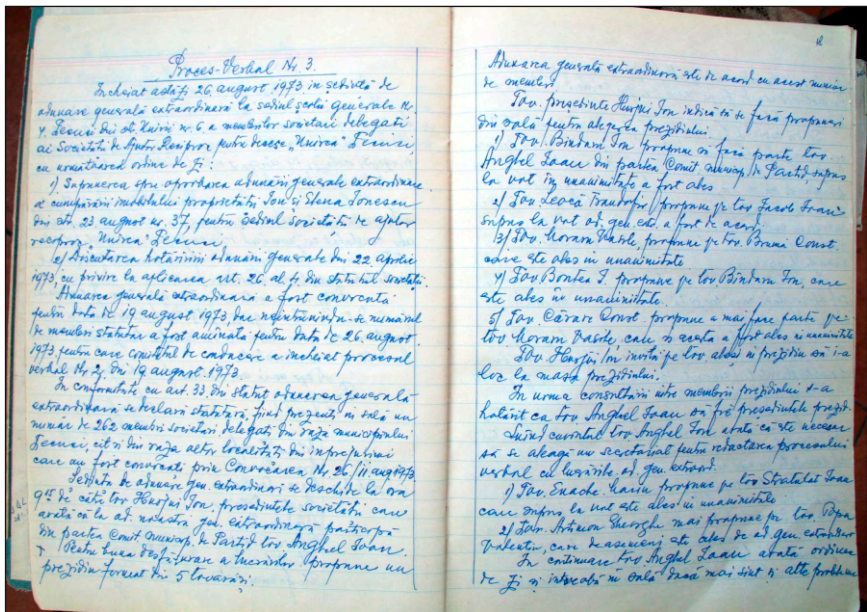 Proces-Verbal Nr. 3.
Încheiat astăzi 26 august 1973 în ședință de
adunare generală extraordinară la sediul școlii generale Nr.
4, Tecuci din str. Unirii nr. 6, a membrilor societari delegați
ai Societății de Ajutor Reciproc pentru deces „Unirea" Tecuci
cu următoarea ordine de zi:
1) Supunerea spre aprobarea adunării generale extraordinare
a cumpărării imobilului proprietății Ion și Elena Ionescu
din str. 23 august nr. 37, pentru sediul societății de ajutor
reciproc „Unirea" Tecuci.
2) Discutarea hotărîrii adunării generale din 22 aprilie
1973, cu privire la aplicarea art. 26, al. din statutul societății.
Adunarea generală extraordinară a fost convocată
pentru data de 19 august 1973, dar neîntrunindu-se numărul
de membri statutar a fost amînată pentru data de 26 august
1973, pentru care comitetul de conducere a încheiat procesul
verbal Nr. 2, din 19 august 1973.
În conformitate cu art. 33 din statut adunarea generală
extraordinară se declară statutară, fiind prezenți în sală un
număr de 262 membri societari delegați din raza municipiului
Tecuci, cît și din raza altor localități din împrejurimi
care au fost convocați prin Convocarea Nr. 26/11 aug. 1973.
Ședința de adunare gen. extraordinară se deschide la ora
9 de către tov. Hurjui Ion, președintele societății care
arată că la ad. noastră gen. extraordinară participă
din partea Comit. municip. de Partid tov. Anghel Ioan.
Pentru buna desfășurare a lucrărilor propune un
prezidiu format din 5 tovarăși.
Adunarea generală extraordinară este de acord cu acest număr
de membri
Tov. președinte Hurjui Ion indică să se facă propuneri
din sală pentru alegerea prezidiului
1) Tov. Bîndaru Ion propune să facă parte tov.
Anghel Ioan din partea Comit. municip. de Partid, supus
la vot în unanimitate a fost ales
2) Tov. Leocă propune pe tov. Iacob Ioan
supus la vot ad. gen. ext. a fost de acord
3) Tov. Moraru Vasile, propune pe tov. Brumă Const.
care este ales în unanimitate
4) Tov. Bontea I. propune pe tov. Bîndaru Ion, care
este ales în unanimitate.
5) Tov. Cărare Const. propune a mai face parte pe
tov. Moraru Vasile, care și acesta a fost ales în unanimitate
Tov. Hurjui Ion invită pe tov. aleși în prezidiu să i-a
loc la masa prezidiului.
În urma consultării între membrii prezidiului s-a
hotărît ca tov. Anghel Ioan să fie președintele prezid.
Luînd cuvîntul tov. Anghel Ion arată că este necesar
să se aleagă un secretariat pentru redactarea procesului
verbal cu lucrările ad. gen. extraord.
1) Tov. Enache propune pe tov. Stratulat Ioan
care supus la vot este ales în unanimitate
2) Tov. Artimon Gheorghe mai propune pe tov. Popa
Valentin, care deasemeni este ales de ad. gen. extraordinară
În continuare tov. Anghel Ioan arată ordinea
de zi și întreabă în sală dacă mai sînt și alte probleme